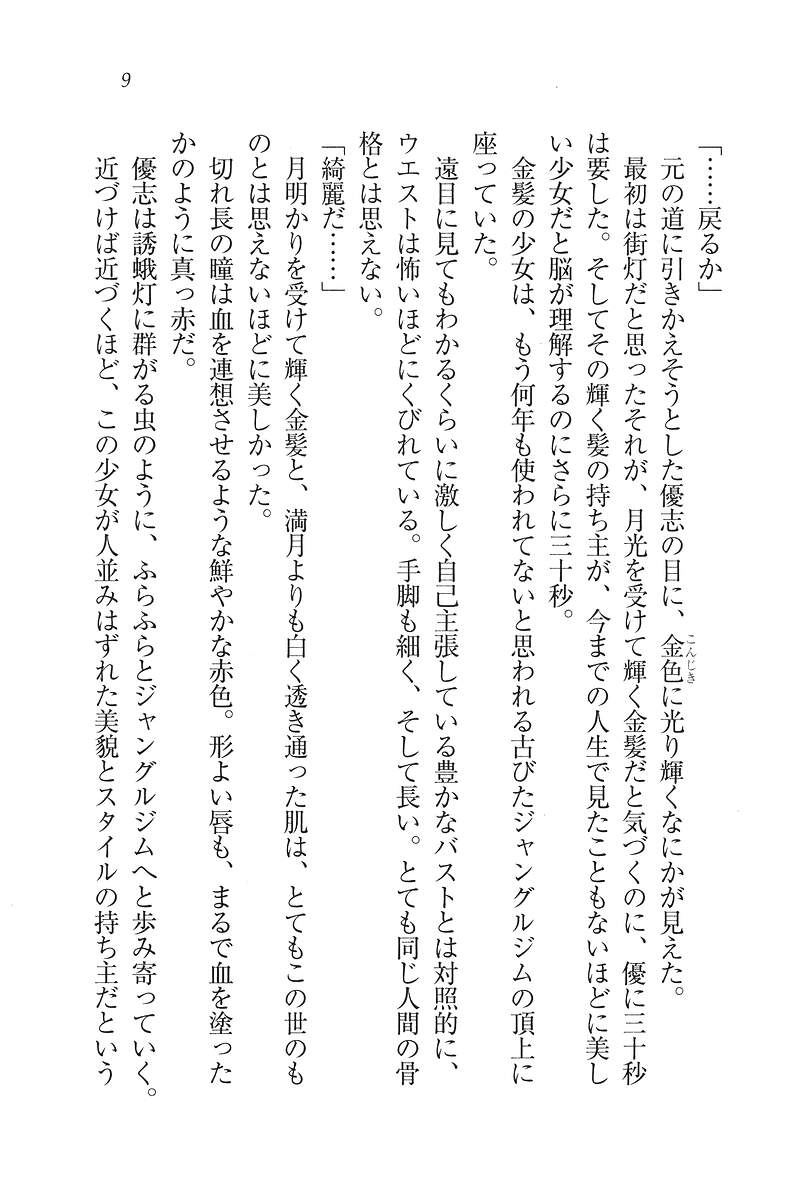 9
「……戻るか」
元の道に引きかえそうとした優志の目に、金色に光り輝くなにかが見えた。
こんじき
最初は街灯だと思ったそれが、月光を受けて輝く金髪だと気づくのに、優に三十秒
は要した。そしてその輝く髪の持ち主が、今までの人生で見たこともないほどに美し
い少女だと脳が理解するのにさらに三十秒。
金髪の少女は、もう何年も使われてないと思われる古びたジャングルジムの頂上に
座っていた。
遠目に見てもわかるくらいに激しく自己主張している豊かなバストとは対照的に、
ウエストは怖いほどにくびれている。手脚も細く、そして長い。とても同じ人間の骨
格とは思えない。
「綺麗だ……」
月明かりを受けて輝く金髪と、満月よりも白く透き通った肌は、とてもこの世のも
のとは思えないほどに美しかった。
切れ長の瞳は血を連想させるような鮮やかな赤色。形よい唇も、まるで血を塗った
かのように真っ赤だ。
優志は誘蛾灯に群がる虫のように、ふらふらとジャングルジムへと歩み寄っていく。
近づけば近づくほど、この少女が人並みはずれた美貌とスタイルの持ち主だという